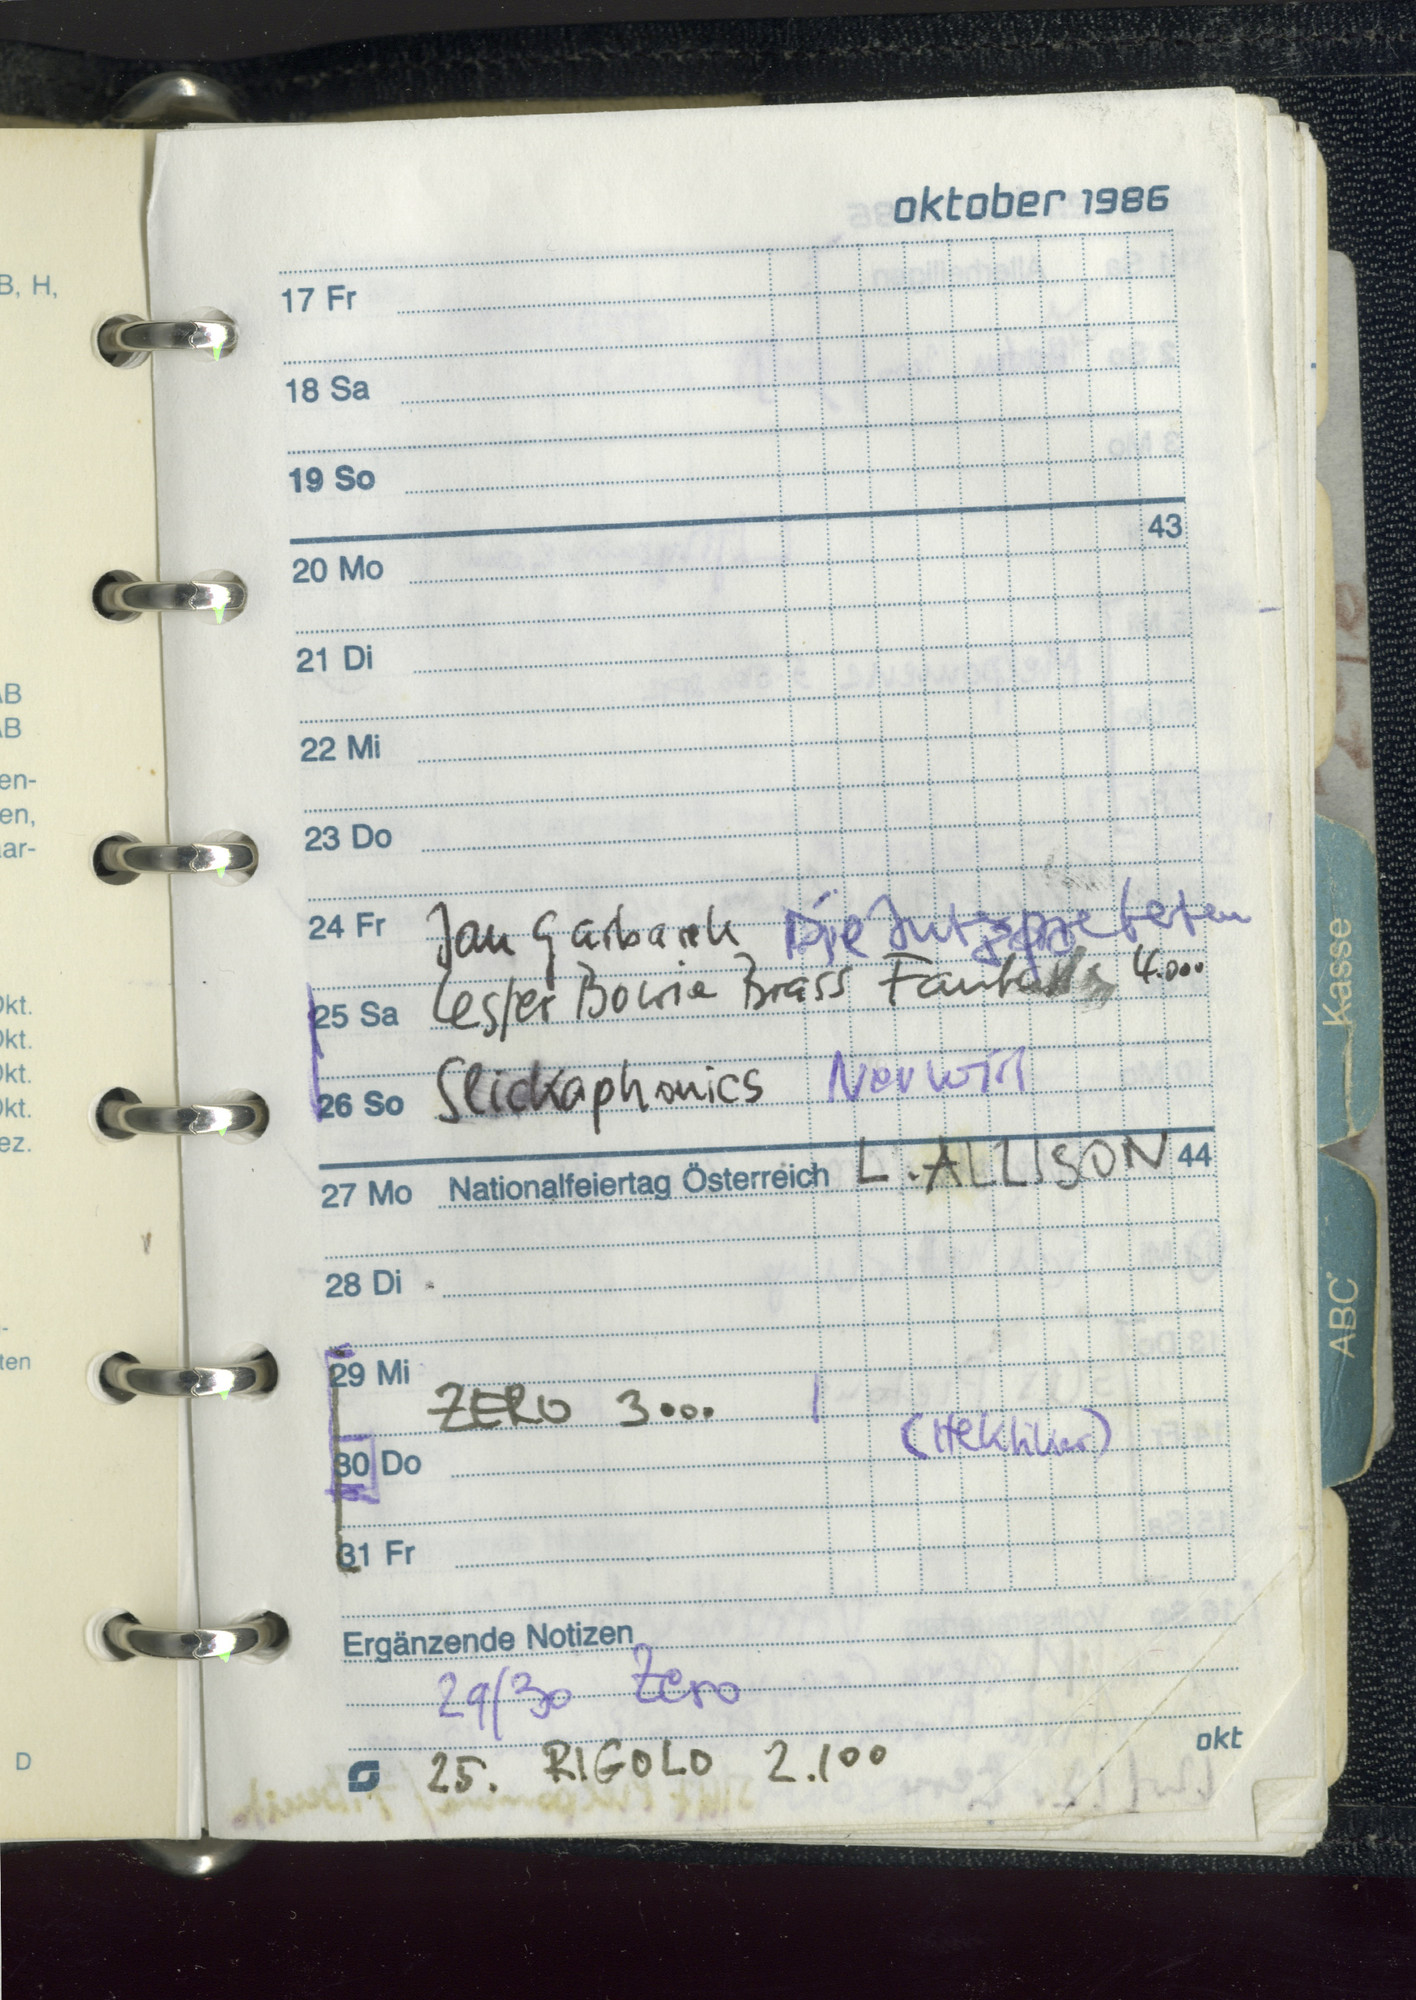 oktober 1986
B, H,
17 Fr
18 Sa
19 So
43
20 Mo
21 Di
AB
AB
22 Mi
en-
en,
aar-
23 Do
24 Fr Jan Garbarek Die
25 Sa Lester Bowie Brass 4.000
Okt.
Okt.
Okt.
Okt.
ez.
26 So Slickaphonics Neuwirt
27 Mo Nationalfeiertag Österreich L. ALLISON 44
28 Di
ten
29 Mi
ZERO 3000
(Hektiker)
30 Do
31 Fr
Ergänzende Notizen
29/30 Zero
okt
D
25. RIGOLO 2.100
Kasse
ABC